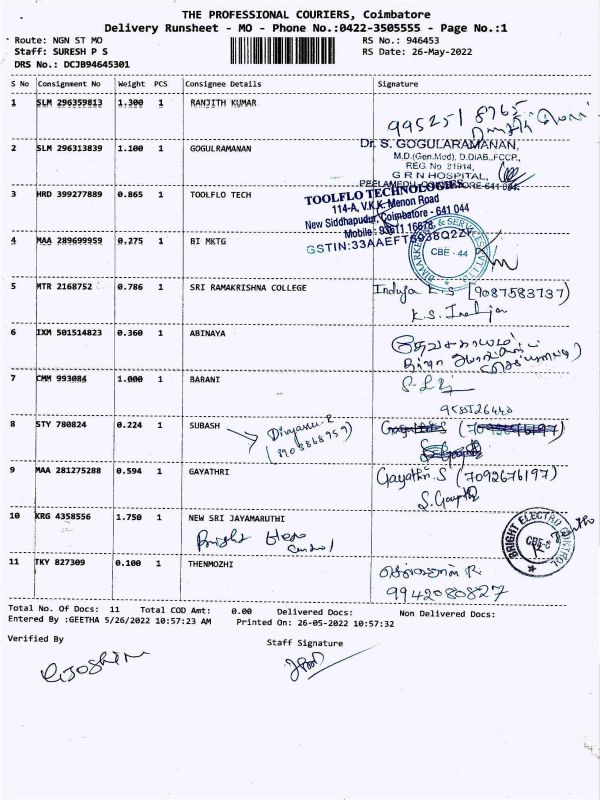 THE PROFESSIONAL COURIERS, Coimbatore
Delivery Runsheet - MO - Phone No.:0422-3505555 - Page No.:1
Route: NGN ST MO RS No.: 946453
Staff: SURESH P S RS Date: 26-May-2022
DRS No.: DCJB94645301
S No Consignment No Weight PCS Consignee Details Signature
1 SLM 296359813 1.300 1 RANJITH KUMAR
99525 18765
2 SLM 296313839 1.100 1 GOGULRAMANAN
Dr. S. GOGULARAMANAN,
M.D.(Gen.Med), D.DIAB.,FCCP.,
REG. No. 81914,
G R N HOSPITAL,
3 HRD 399277889 0.865 1 TOOLFLO TECH
TOOLFLO TECHNOLOGIES
114-A, V.K.K. Menon Road
New Siddhapudur, Coimbatore - 641 044
4 MAA 289699959 0.275 1 BI MKTG
CBE - 44
5 MTR 2168752 0.786 1 SRI RAMAKRISHNA COLLEGE
Induja K S (9087583737)
6 IXM 501514823 0.360 1 ABINAYA
7 CMM 993084 1.000 1 BARANI
8 STY 780824 0.224 1 SUBASH
9 MAA 281275288 0.594 1 GAYATHRI
Gayathri.S (7092676197)
10 KRG 4358556 1.750 1 NEW SRI JAYAMARUTHI
Bright
BRIGHT ELECTRO CONTROL
11 TKY 827309 0.100 1 THENMOZHI
9942080827
Total No. Of Docs: 11 Total COD Amt: 0.00 Delivered Docs: Non Delivered Docs:
Entered By :GEETHA 5/26/2022 10:57:23 AM Printed On: 26-05-2022 10:57:32
Verified By Staff Signature